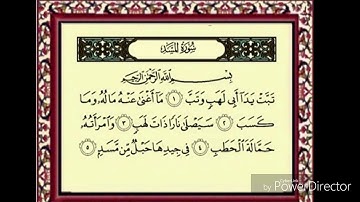 سُورَةُ المَسَدِ
بِسْمِ اللَّهِ الرَّحْمَٰنِ الرَّحِيمِ
تَبَّتْ يَدَا أَبِي لَهَبٍ وَتَبَّ ١ مَا أَغْنَىٰ عَنْهُ مَالُهُ وَمَا
كَسَبَ ٢ سَيَصْلَىٰ نَارًا ذَاتَ لَهَبٍ ٣ وَامْرَأَتُهُ
حَمَّالَةَ الْحَطَبِ ٤ فِي جِيدِهَا حَبْلٌ مِّن مَّسَدٍ ٥
by PowerDirector